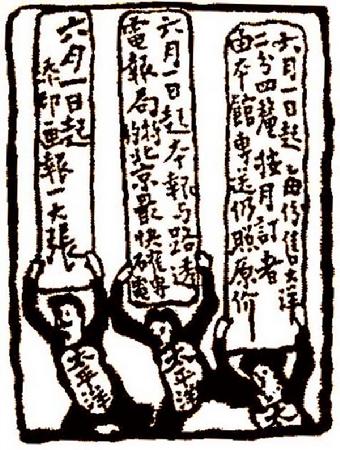 六月一日起每份售大洋
二分四釐按月訂者
由本館專送仍照原价
太
六月一日起本報与路透
電報局特約北京最快確專電
太平洋
六月一日起
添印画報一大張
太平洋